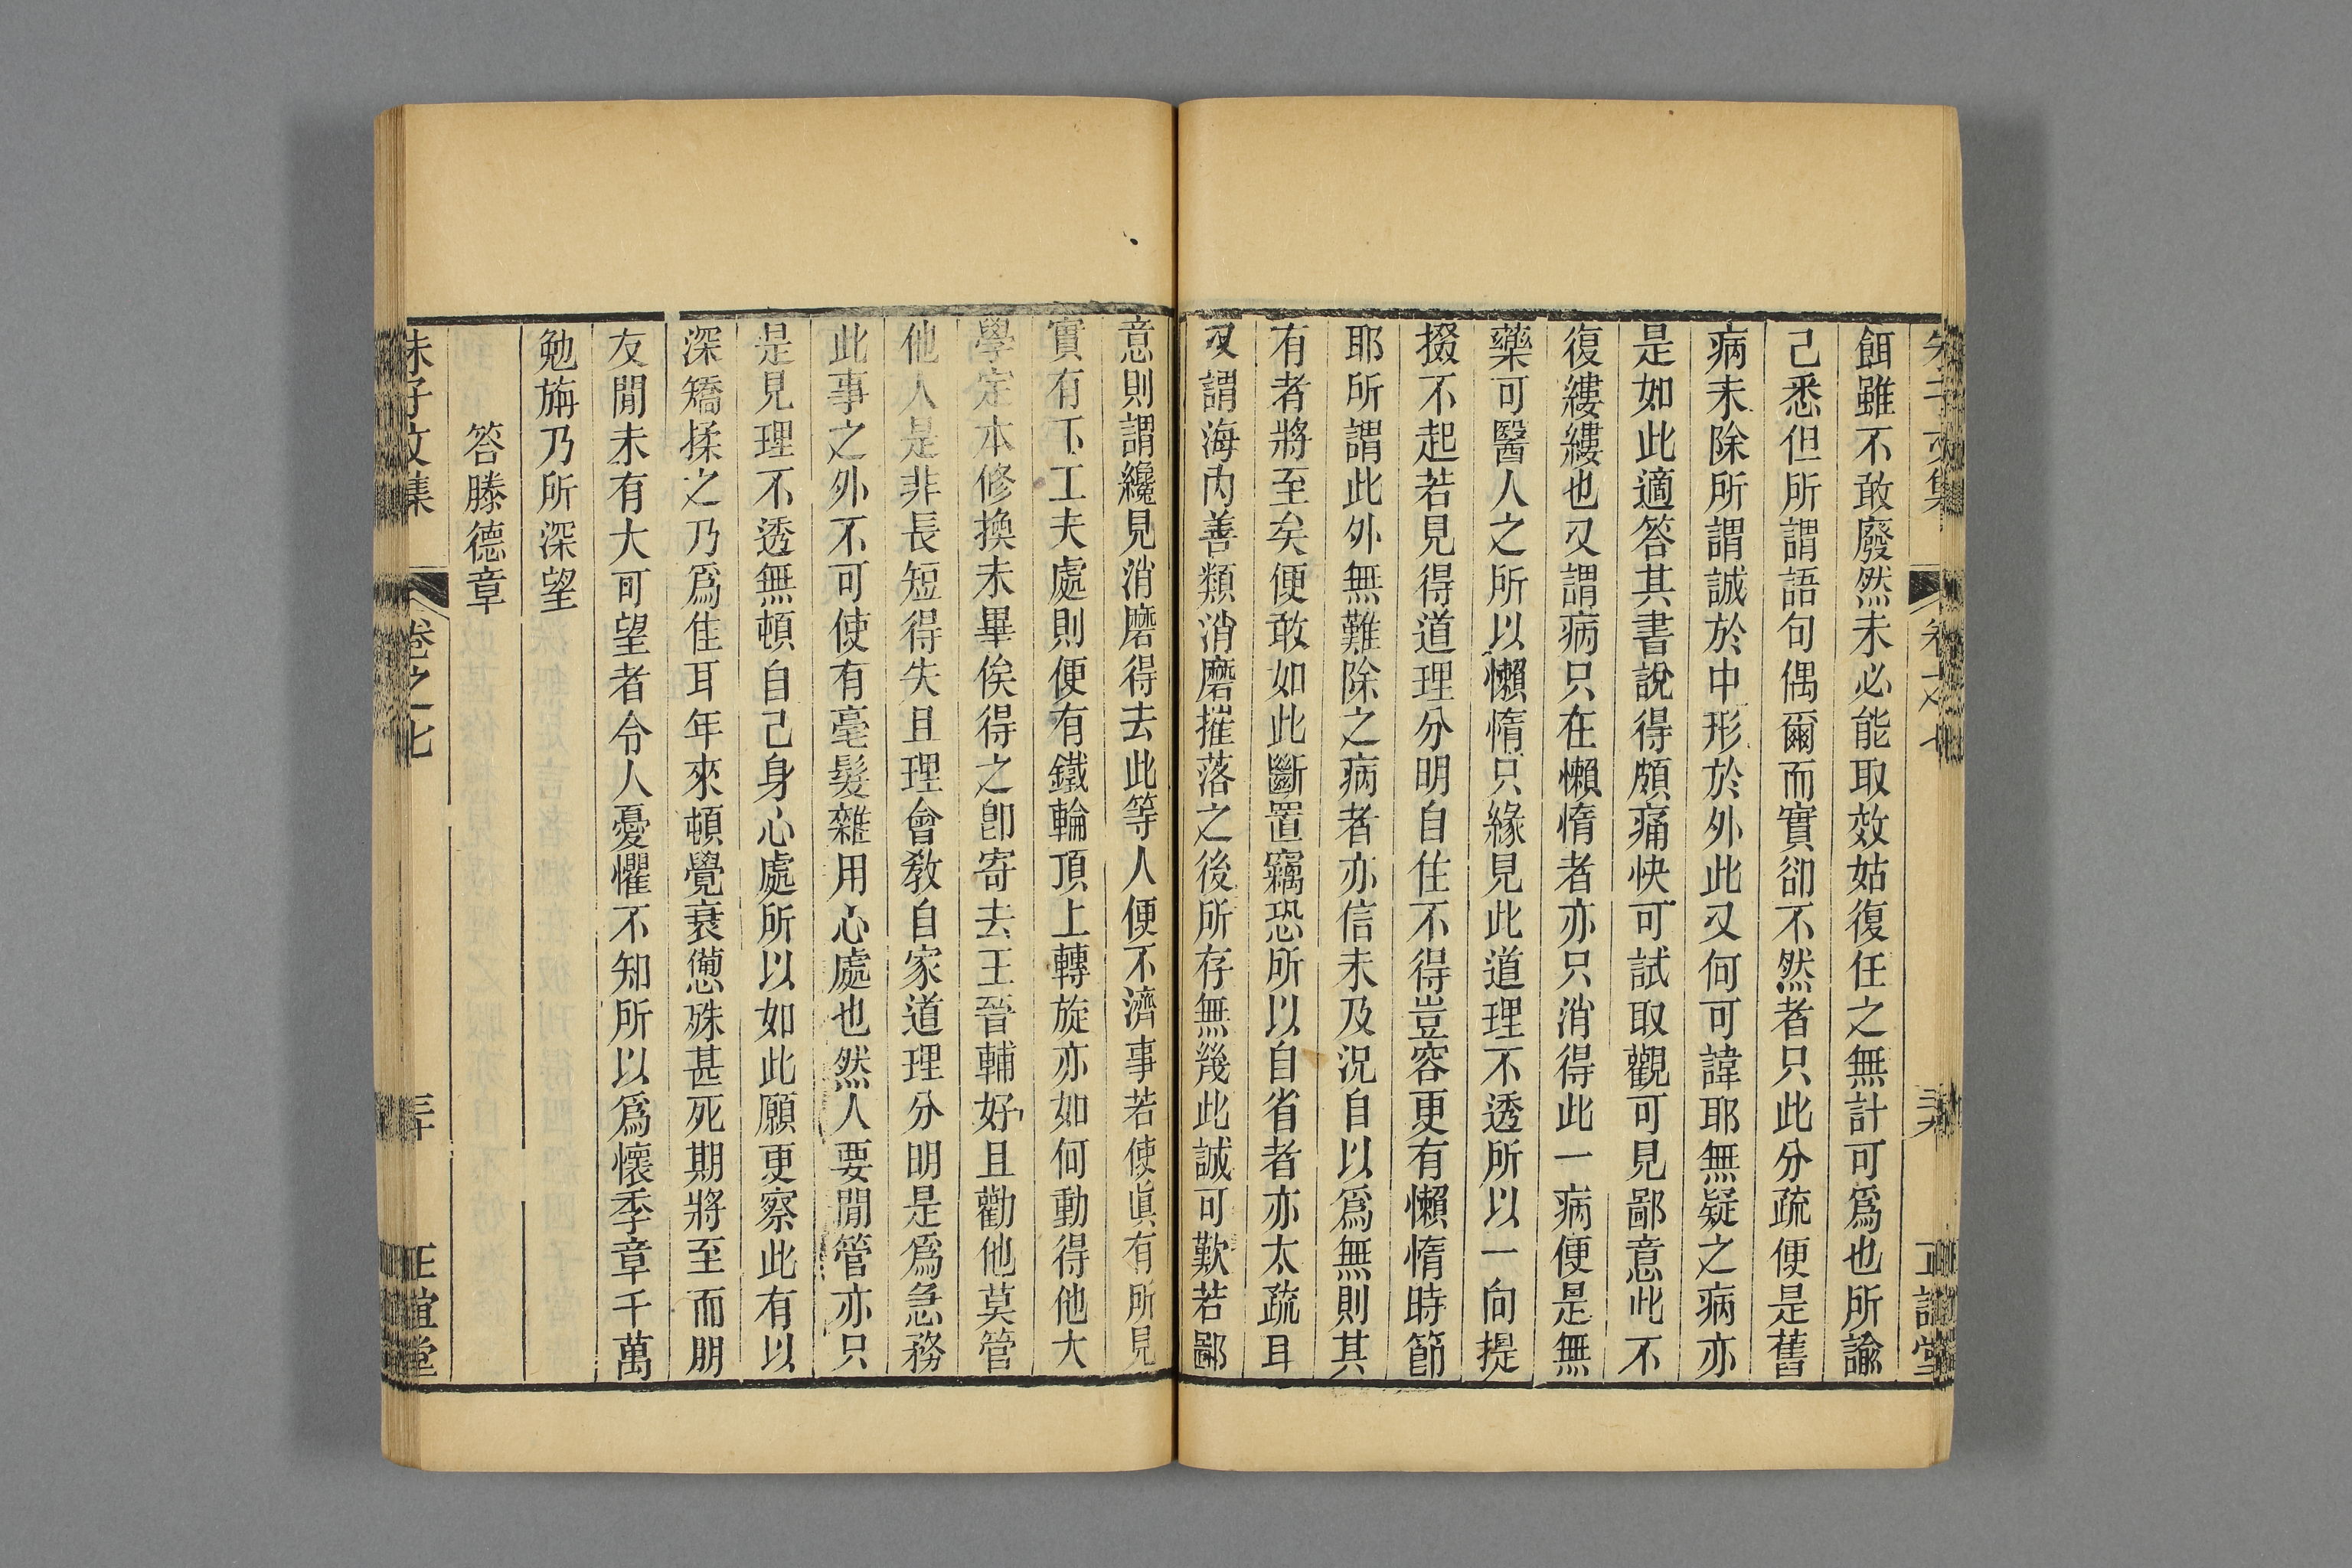 餌雖不敢廢然未必能取效姑復任之無計可爲也所諭
己悉但所謂語句偶爾而實卻不然者只此分疏便是舊
病未除所謂誠於中形於外此又何可諱耶無疑之病亦
是如此適答其書說得頗痛快可試取觀可見鄙意此不
復縷縷也又謂病只在懶惰者亦只消得此一病便是無
藥可醫人之所以懶惰只緣見此道理不透所以一向提
掇不起若見得道理分明自住不得豈容更有懶惰時節
耶所謂此外無難除之病者亦信未及況自以爲無則其
有者將至矣便敢如此斷置竊恐所以自省者亦太疏耳
又謂海內善類消磨摧落之後所存無幾此誠可歎若鄙
意則謂纔見消磨得去此等人便不濟事若使眞有所見
實有下工夫處則便有鐵輪頂上轉旋亦如何動得他大
學定本修換未畢俟得之卽寄去王晉輔好且勸他莫管
他人是非長短得失且理會敎自家道理分明是爲急務
此事之外不可使有毫髮雜用心處也然人要閒管亦只
是見理不透無頓自己身心處所以如此願更察此有以
深矯揉之乃爲佳耳年來頓覺衰憊殊甚死期將至而朋
友閒未有大可望者令人憂懼不知所以爲懷季章千萬
勉旃乃所深望
答滕德章
朱子文集
卷之七
三十
正誼堂